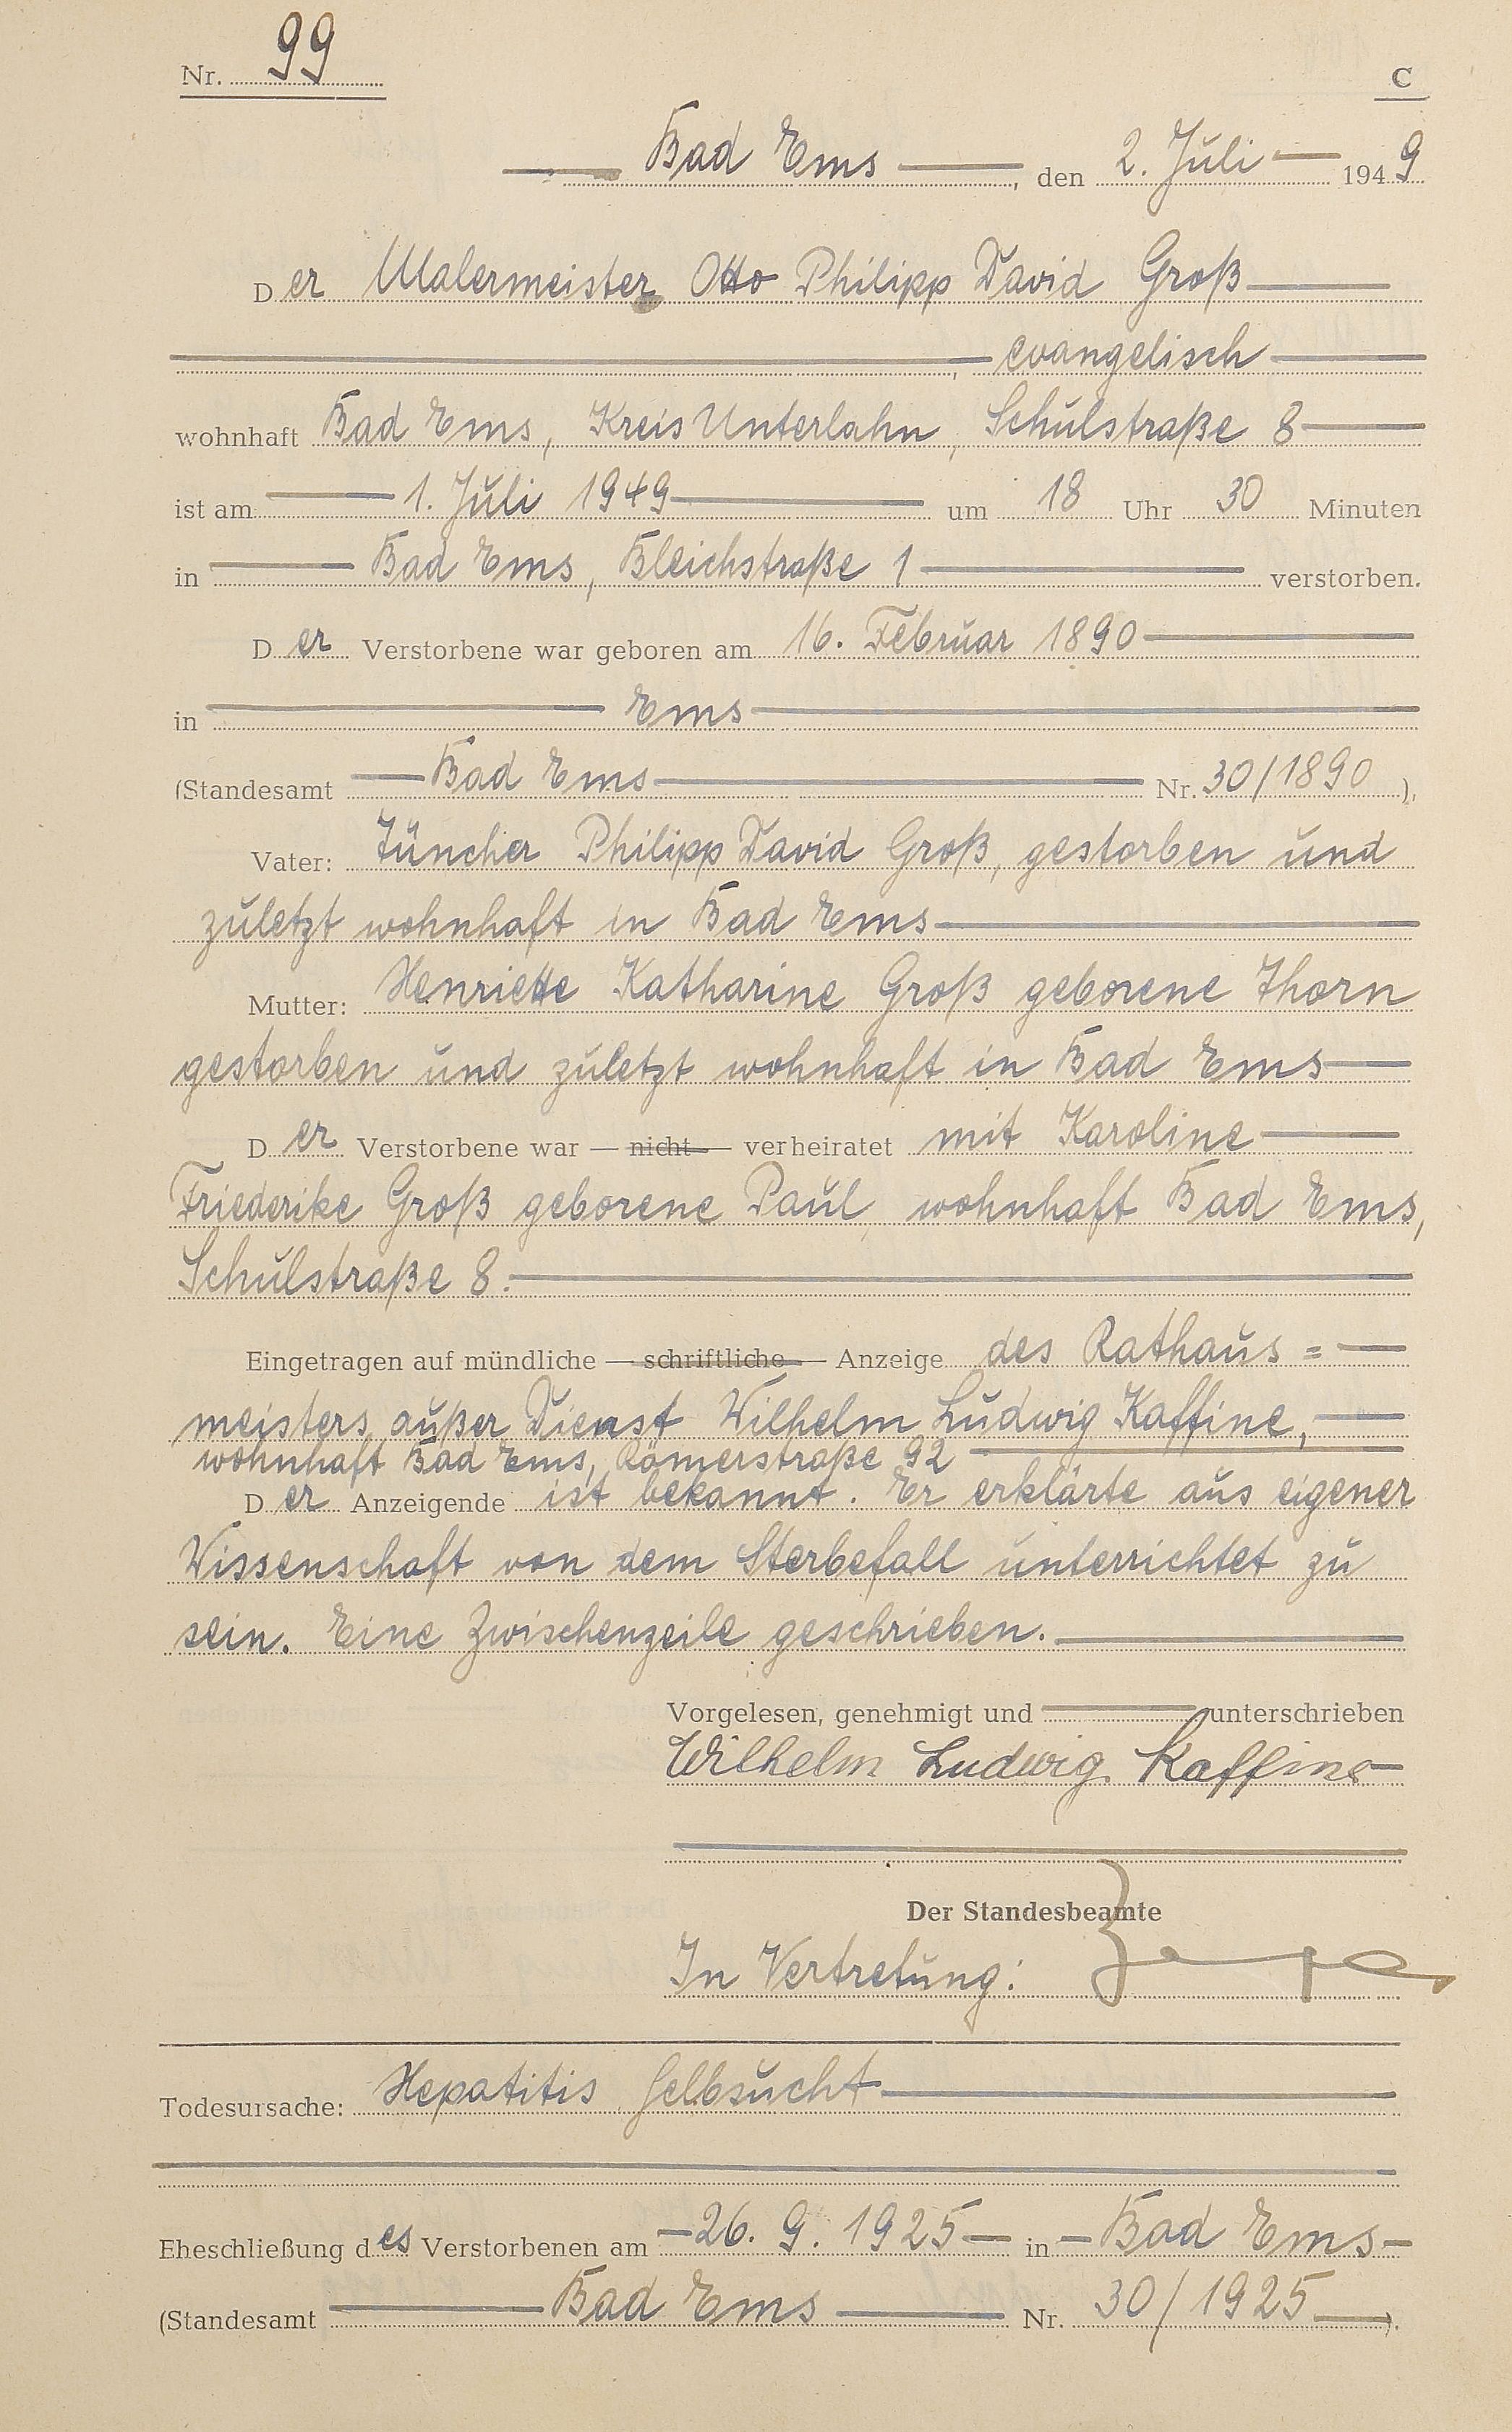 Nr. 99 C
Bad Ems, den 2. Juli 1949
Der Malermeister Otto Philipp David Groß
, evangelisch
wohnhaft Bad Ems, Kreis Unterlahn, Schulstraße 8
ist am 1. Juli 1949 um 18 Uhr 30 Minuten
in Bad Ems, Bleichstraße 1 verstorben.
Der Verstorbene war geboren am 16. Februar 1890
in Ems
(Standesamt Bad Ems Nr. 30/1890),
Vater: Tüncher Philipp David Groß, gestorben und
zuletzt wohnhaft in Bad Ems
Mutter: Henriette Katharine Groß geborene Thorn
gestorben und zuletzt wohnhaft in Bad Ems
Der Verstorbene war — nicht — verheiratet mit Karoline
Friederike Groß geborene Paul, wohnhaft Bad Ems,
Schulstraße 8.
Eingetragen auf mündliche — schriftliche — Anzeige des Rathaus =
meisters außer Dienst Wilhelm Ludwig Kaffine,
wohnhaft Bad Ems, Römerstraße 92
Der Anzeigende ist bekannt. Er erklärte aus eigener
Wissenschaft von dem Sterbefall unterrichtet zu
sein. Eine Zwischenzeile geschrieben.
Vorgelesen, genehmigt und unterschrieben
Wilhelm Ludwig Kaffine
Der Standesbeamte
In Vertretung:
Todesursache: Hepatitis Gelbsucht
Eheschließung des Verstorbenen am 26. 9. 1925 in Bad Ems
(Standesamt Bad Ems Nr. 30/1925).